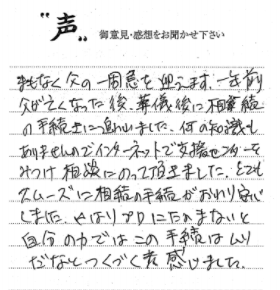 "声" 御意見・感想をお聞かせ下さい
まもなく父の一周忌を迎えます。一年前
父が亡くなった後、葬儀後に相続
の手続きに追われました。何の知識も
ありませんのでインターネットで支援センターを
みつけ相談にのって頂きました。とても
スムーズに相続の手続がおわり安心
しました。やはりプロにたのまないと
自分の力ではこの手続はムリ
だなとつくづく実感しました。